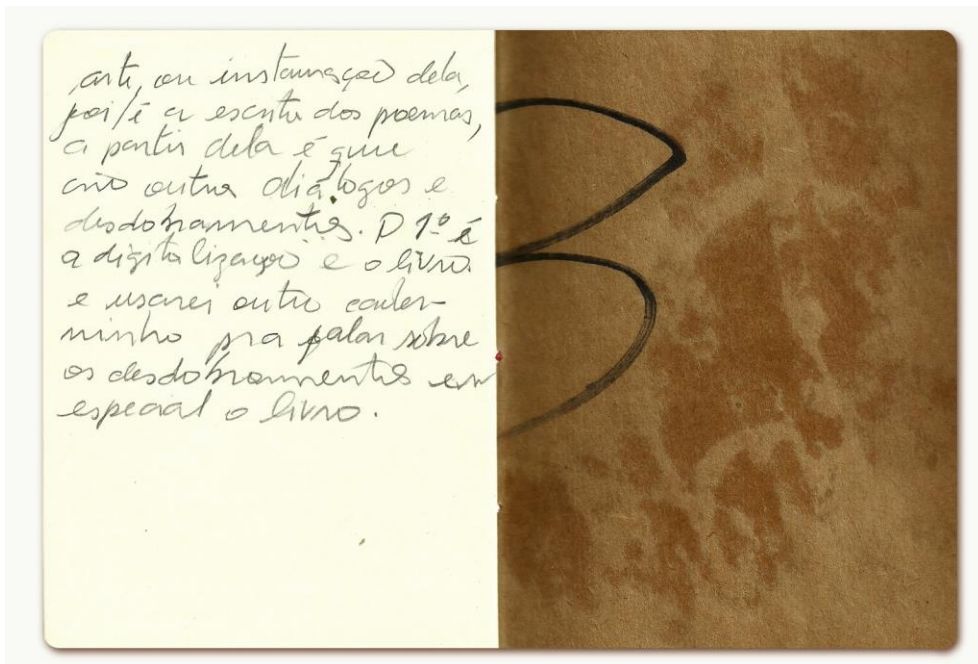 arte, ou instauração dela,
pois é a escrita dos poemas,
a partir dela é que
crio outros diálogos e
desdobramentos. O 1º é
a digitalização e o livro
e usarei outro cader-
ninho pra falar sobre
os desdobramentos em
especial o livro.
3